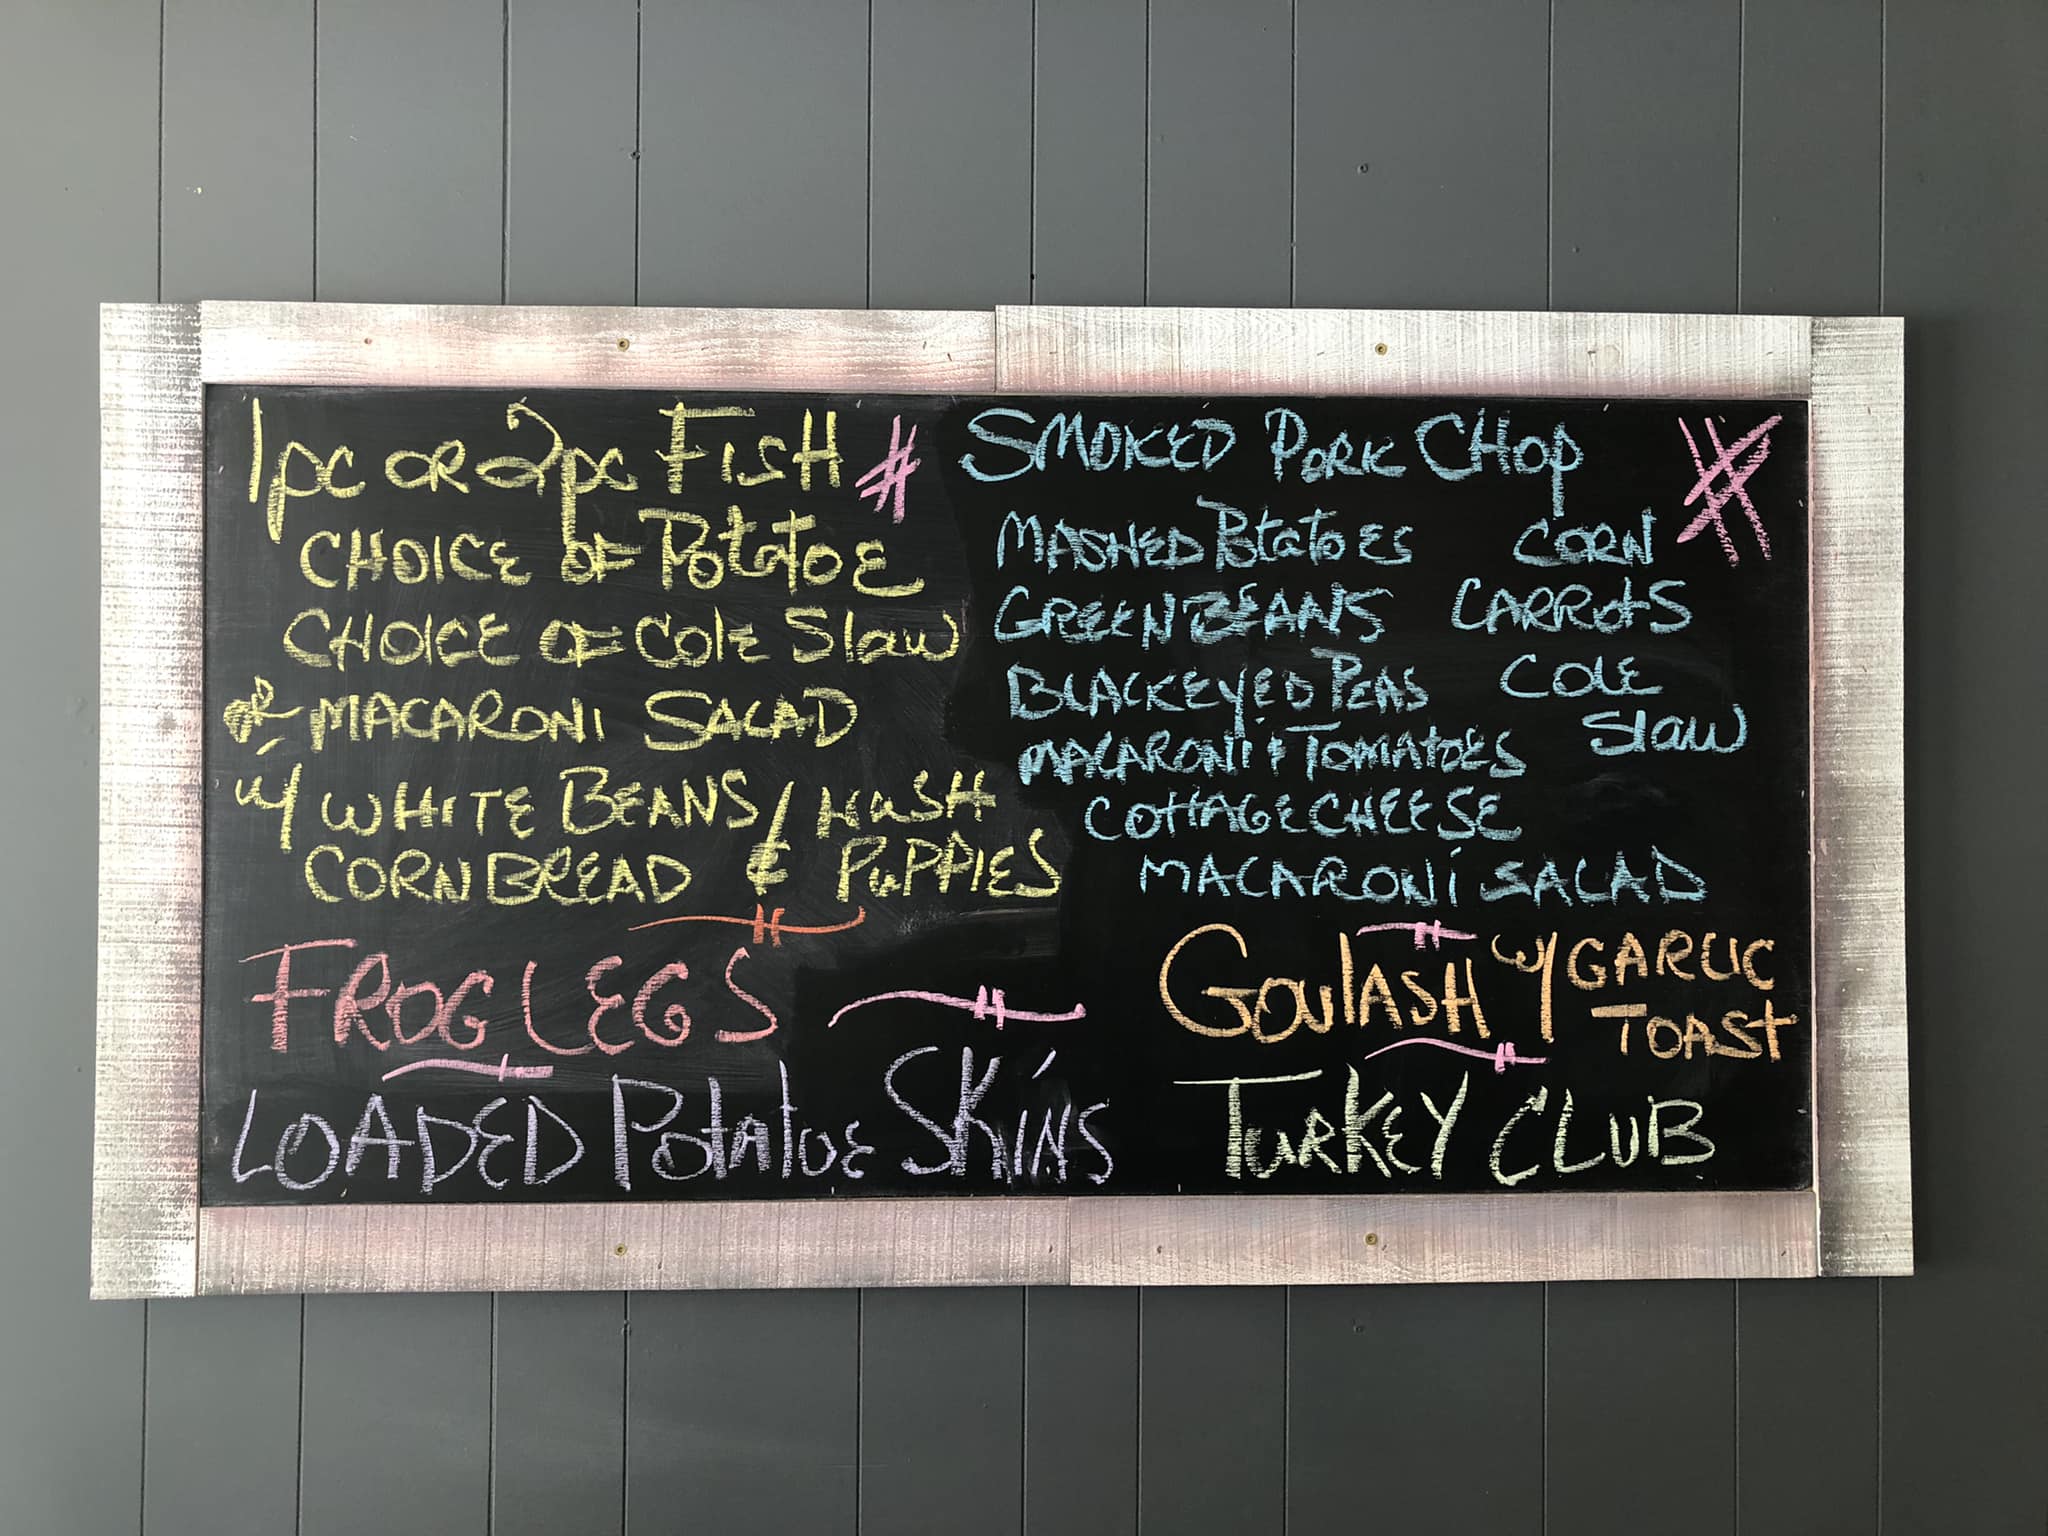 1pc OR 2pc FISH #
CHOICE OF POtAtOE
CHOICE OF Cole Slaw
OR MACARONI SALAD
w/ WHITE BEANS / HuSH
CORNBREAD & PuPPIES
FROG LEGS
LOADED POtAtOE SKiNS
SMOKED PORK CHOp #
MASHED POtAtOES CORN
GREEN BEANS CARROtS
BLACKEYED PEAS COLE
Slaw
MACARONi + TOMATOES
COttAGE CHEESE
MACARONi SALAD
GOulASH w/ GARLIC
TOASt
TuRKEY CLUB